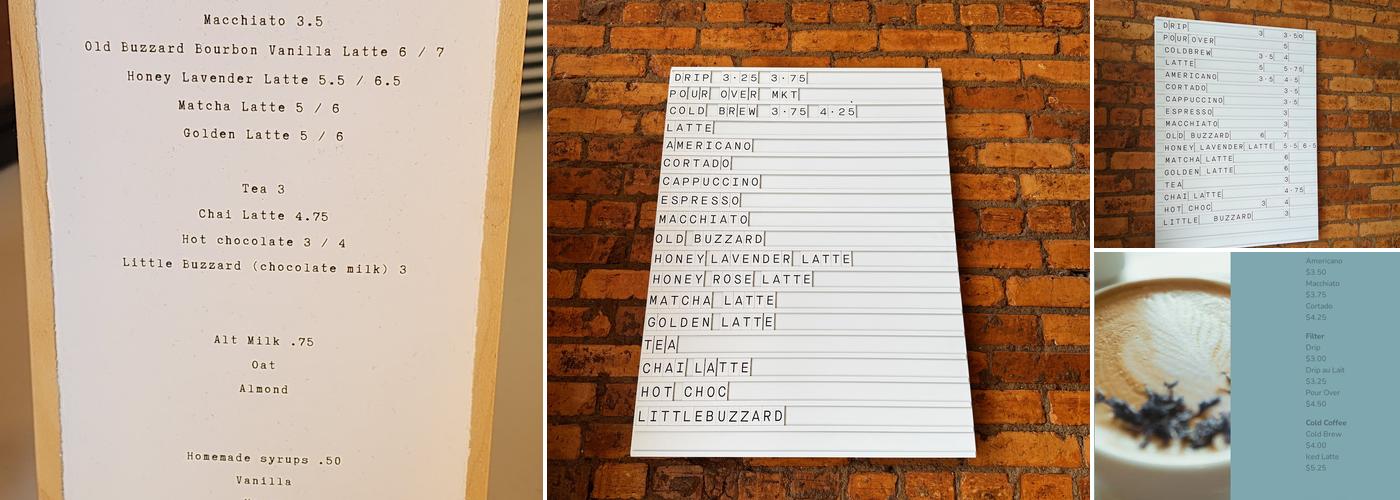 Macchiato 3.5
Old Buzzard Bourbon Vanilla Latte 6 / 7
Honey Lavender Latte 5.5 / 6.5
Matcha Latte 5 / 6
Golden Latte 5 / 6
Tea 3
Chai Latte 4.75
Hot chocolate 3 / 4
Little Buzzard (chocolate milk) 3
Alt Milk .75
Oat
Almond
Homemade syrups .50
Vanilla
DRIP 3.25 3.75
POUR OVER MKT
COLD BREW 3.75 4.25
LATTE
AMERICANO
CORTADO
CAPPUCCINO
ESPRESSO
MACCHIATO
OLD BUZZARD
HONEY LAVENDER LATTE
HONEY ROSE LATTE
MATCHA LATTE
GOLDEN LATTE
TEA
CHAI LATTE
HOT CHOC
LITTLEBUZZARD
DRIP 3 3.50
POUR OVER 5
COLDBREW 3.5 4
LATTE 5 5.75
AMERICANO 3.5 4.5
CORTADO 3.5
CAPPUCCINO 3.5
ESPRESSO 3
MACCHIATO 3
OLD BUZZARD 6 7
HONEY LAVENDER LATTE 5.5 6.5
MATCHA LATTE 6
GOLDEN LATTE 6
TEA 3
CHAI LATTE 4.75
HOT CHOC 3 4
LITTLE BUZZARD 3
Americano
$3.50
Macchiato
$3.75
Cortado
$4.25
Filter
Drip
$3.00
Drip au Lait
$3.25
Pour Over
$4.50
Cold Coffee
Cold Brew
$4.00
Iced Latte
$5.25